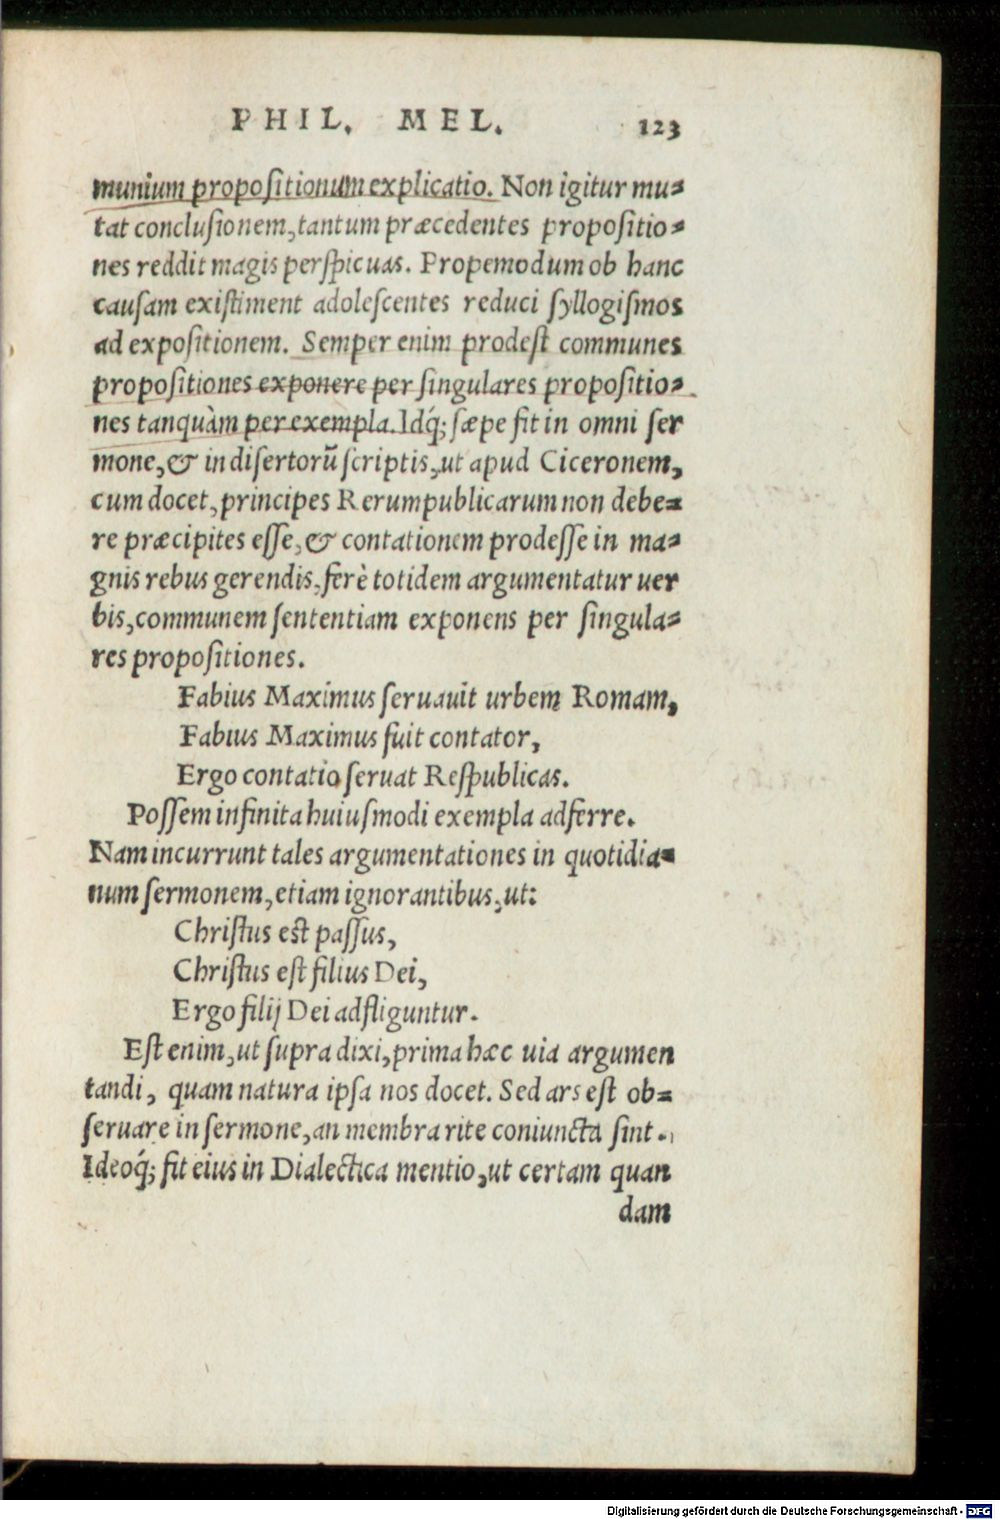 PHIL. MEL. 123
munium propositionum explicatio. Non igitur mu=
tat conclusionem, tantum præcedentes propositio=
nes reddit magis perspicuas. Propemodum ob hanc
causam existiment adolescentes reduci syllogismos
ad expositionem. Semper enim prodest communes
propositiones exponere per singulares propositio=
nes tanquàm per exempla. Idq́; sæpe fit in omni ser
mone, & in disertorũ scriptis, ut apud Ciceronem,
cum docet, principes Rerumpublicarum non debe=
re præcipites esse, & contationem prodesse in ma=
gnis rebus gerendis, ferè totidem argumentatur uer
bis, communem sententiam exponens per singula=
res propositiones.
Fabius Maximus seruauit urbem Romam,
Fabius Maximus fuit contator,
Ergo contatio seruat Respublicas.
Possem infinita huiusmodi exempla adferre.
Nam incurrunt tales argumentationes in quotidia=
num sermonem, etiam ignorantibus, ut:
Christus est passus,
Christus est filius Dei,
Ergo filij Dei adfliguntur.
Est enim, ut supra dixi, prima hæc uia argumen
tandi, quam natura ipsa nos docet. Sed ars est ob=
seruare in sermone, an membra rite coniuncta sint.
Ideoq́; fit eius in Dialectica mentio, ut certam quan
dam
Digitalisierung gefördert durch die Deutsche Forschungsgemeinschaft - DFG